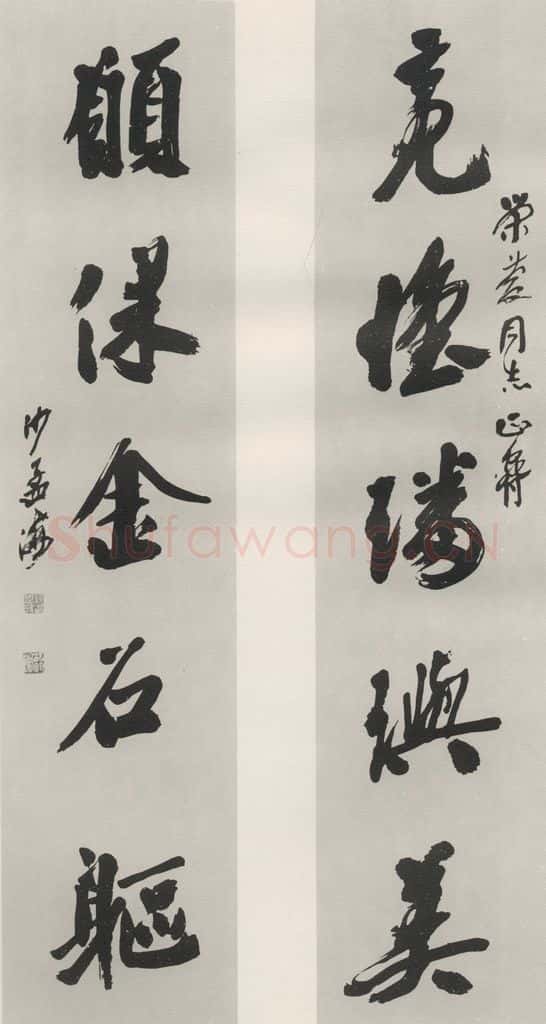 亮懷璠璵美
荣同志正
願保金石軀
沙孟海
Shufawang.CN